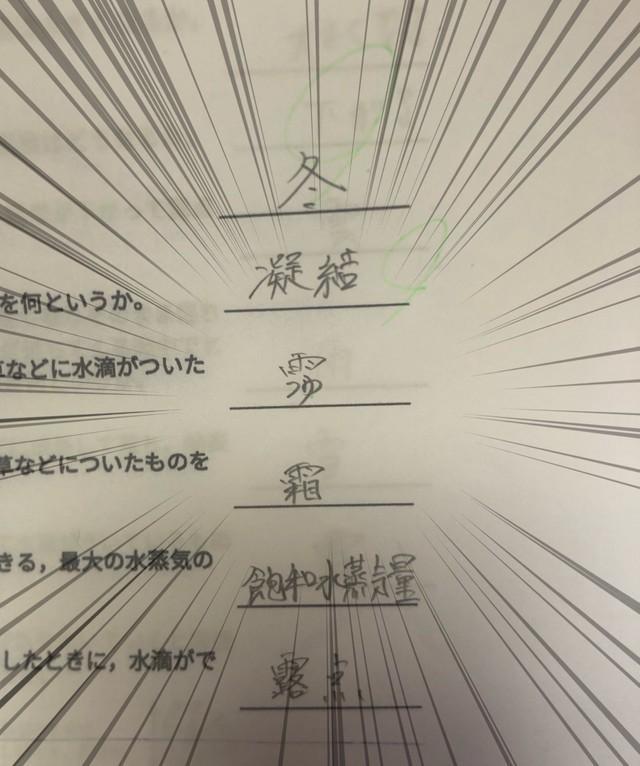 冬
凝結
を何というか。
などに水滴がついた
霜
草などについたものを
きる，最大の水蒸気の
飽和水蒸気量
したときに，水滴がで
露点